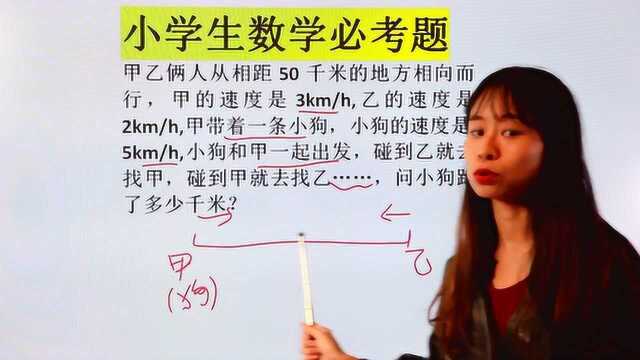 小学生数学必考题
甲乙俩人从相距 50 千米的地方相向而
行，甲的速度是 3km/h,乙的速度是
2km/h,甲带着一条小狗，小狗的速度是
5km/h,小狗和甲一起出发，碰到乙就去
找甲，碰到甲就去找乙……，问小狗跑
了多少千米？
甲
乙
(狗)